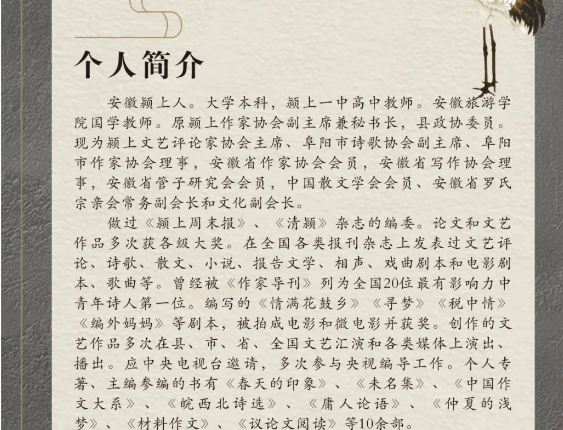 个人简介
安徽颍上人。大学本科，颍上一中高中教师。安徽旅游学
院国学教师。原颍上作家协会副主席兼秘书长，县政协委员。
现为颍上文艺评论家协会主席、阜阳市诗歌协会副主席、阜阳
市作家协会理事，安徽省作家协会会员，安徽省写作协会理
事，安徽省管子研究会会员，中国散文学会会员、安徽省罗氏
宗亲会常务副会长和文化副会长。
做过《颍上周末报》、《清颍》杂志的编委。论文和文艺
作品多次获各级大奖。在全国各类报刊杂志上发表过文艺评
论、诗歌、散文、小说、报告文学、相声、戏曲剧本和电影剧
本、歌曲等。曾经被《作家导刊》列为全国20位最有影响力中
青年诗人第一位。编写的《情满花鼓乡》《寻梦》《税中情》
《编外妈妈》等剧本，被拍成电影和微电影并获奖。创作的文
艺作品多次在县、市、省、全国文艺汇演和各类媒体上演出、
播出。应中央电视台邀请，多次参与央视编导工作。个人专
著、主编参编的书有《春天的印象》、《未名集》、《中国作
文大系》、《皖西北诗选》、《庸人论语》、《仲夏的浅
梦》、《材料作文》、《议论文阅读》等10余部。